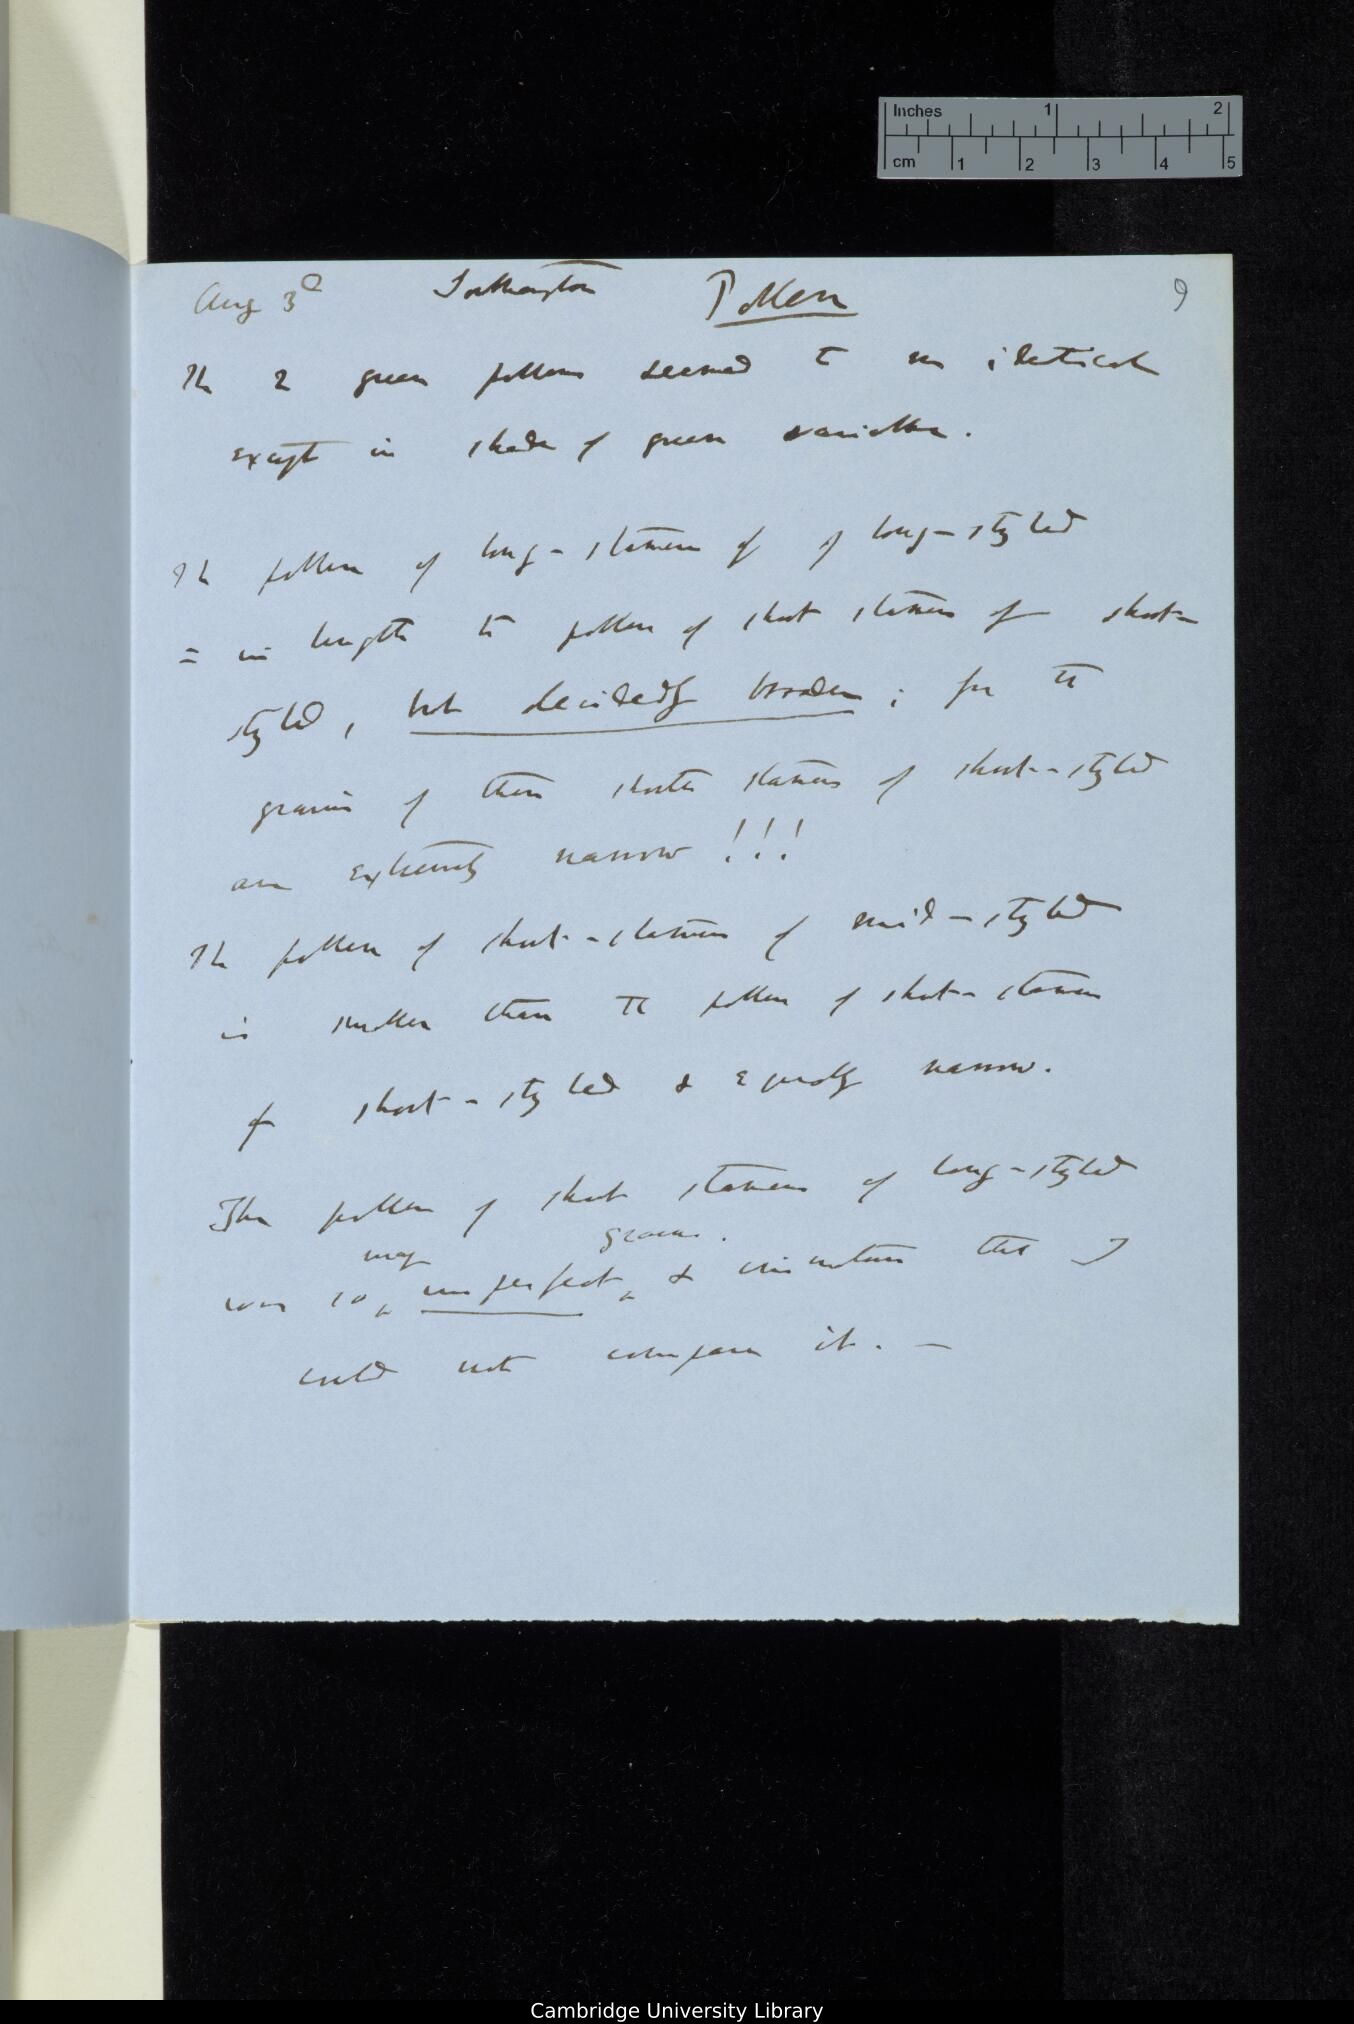 Inches 1 2
cm 1 2 3 4 5
Aug 3d Southampton Pollen 9
The 2 green pollens seemed to me identical
except in shade of green variation.
The pollen of long-stamens of of long-styled
= in length to pollen of short stamens of short-
styled, but decidedly broader; for the
grains of these shorter stamens of short-styled
are extremely narrow!!!
The pollen of short-stamens of mid-styled
is smaller than the pollen of short-stamens
of short-styled & equally narrow.
The pollen of short stamens of long-styled
many grains.
was so imperfect & immature that I
could not compare it. —
Cambridge University Library